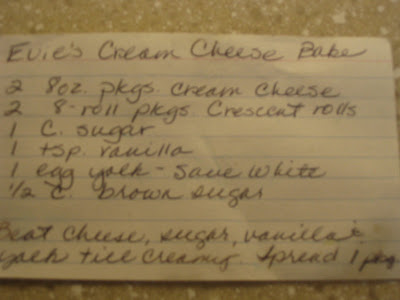 Evie's Cream Cheese Bake
2 8oz. pkgs. Cream Cheese
2 8-roll pkgs. Crescent rolls
1 C. sugar
1 tsp. vanilla
1 egg yolk - save white
1/2 C. brown sugar
Beat cheese, sugar, vanilla &
yolk till creamy. Spread 1 pkg